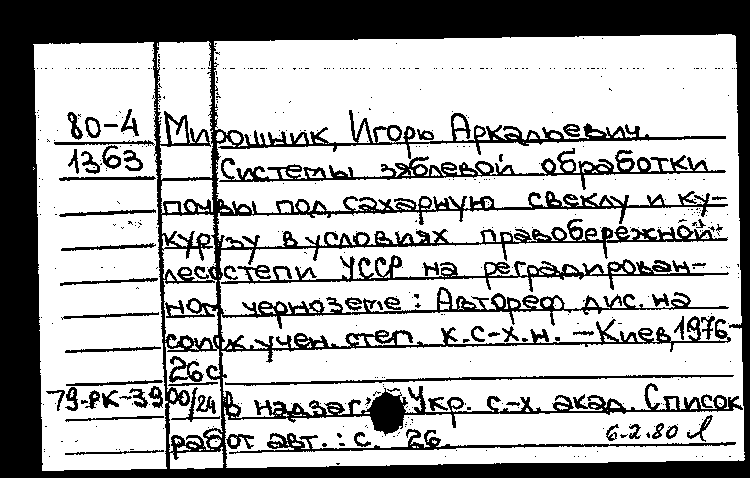 80-4 Мирошник, Игорь Аркадьевич.
1363 Системы зяблевой обработки
почвы под сахарную свеклу и ку-
курузу в условиях правобережной
лесостепи УССР на реградирован-
ном черноземе: Автореф. дис. на
соиск. учен. степ. к.с-х.н. - Киев, 1976.-
26 с.
79-РК-3900/24 В надзаг. Укр. с.-х. акад. Список
работ авт.: с. 26.
6.2.80